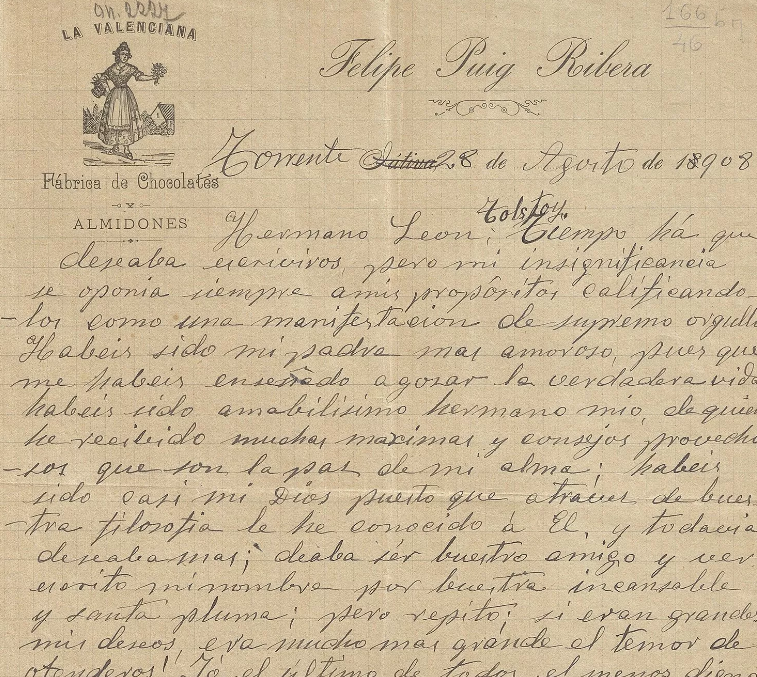 LA VALENCIANA
166
Felipe Puig Ribera
Torrente 28 de Agosto de 1908
Fábrica de Chocolates
ALMIDONES
Tolstoy.
Hermano Leon; Tiempo há que
deseaba escriviros, pero mi insignificancia
se oponia siempre amis propósitos calificando-
-los como una manifestacion de supremo orgullo
Habeis sido mi padre mas amoroso, pues que
me habeis enseñado agosar la verdadera vida
habeis sido amabilisimo hermano mio, de quien
he recibido muchas maximas y consejos provecho
-sos que son la pas de mi alma; habeis
sido casi mi Dios puesto que atráves de bues-
-tra filosofia le he conocido á El, y todavia
deseaba mas; deaba sér buestro amigo y ver
escrito mi nombre por buestra incansable
y santa pluma; pero repito; si eran grandes
mis deseos, era mucho mas grande el temor de
ofenderos! Yó el último de todos el menos digno